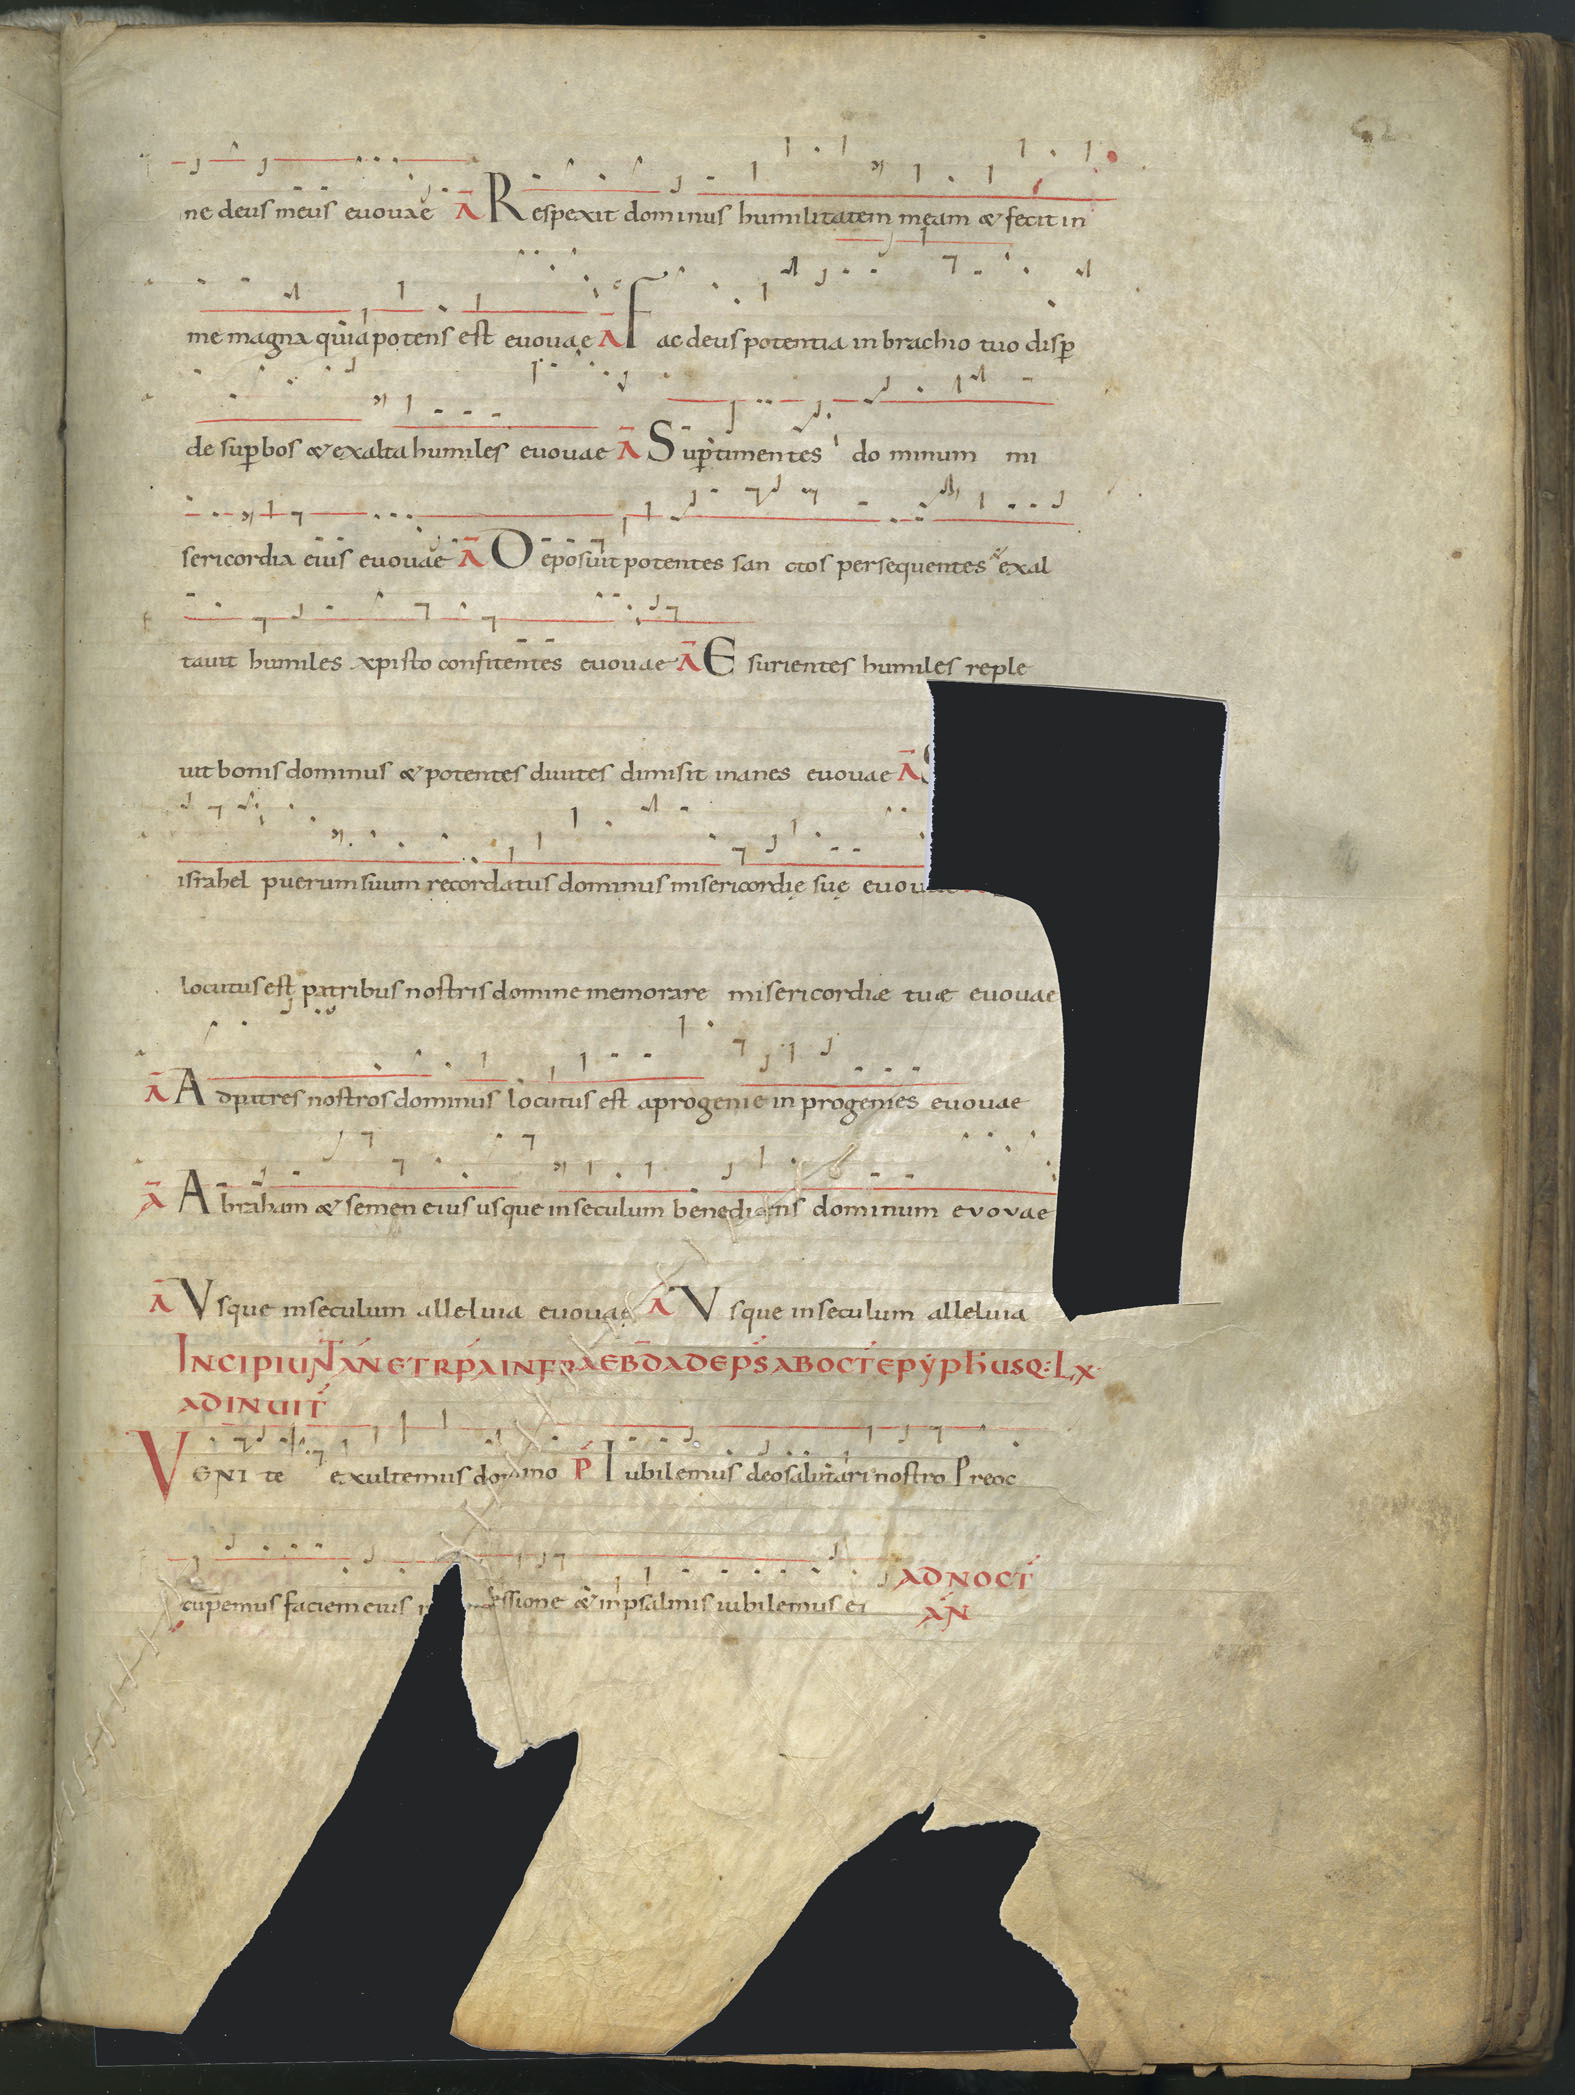 62
ne deus meus euouae A Respexit dominus humilitatem meam & fecit in
me magna quia potens est euouae A Fac deus potentia in brachio tuo disp
de supbos & exalta humiles euouae A Sup timentes dominum mi
sericordia eius euouae A Deposuit potentes sanctos persequentes & exal
tauit humiles xpisto confitentes euouae A Esurientes humiles reple
uit bonis dominus & potentes diuites dimisit inanes euouae A
israhel puerum suum recordatus dominus misericordię suę euou
locutus est patribus nostris domine memorare misericordiæ tuæ euouae
A Ad patres nostros dominus locutus est a progenie in progenies euouae
A Abraham & semen eius usque in seculum benedicens dominum euouae
A Vsque in seculum alleluia euouae A Vsque in seculum alleluia
INCIPIUNT AN ET RP A INFRA EBD AD EPS AB OCT EPYPH USQ: LX
AD INUIT
VENITE exultemus domino P Iubilemus deo salutari nostro Preoc
cupemus faciem eius essione & in psalmis iubilemus ei AD NOCT
AN